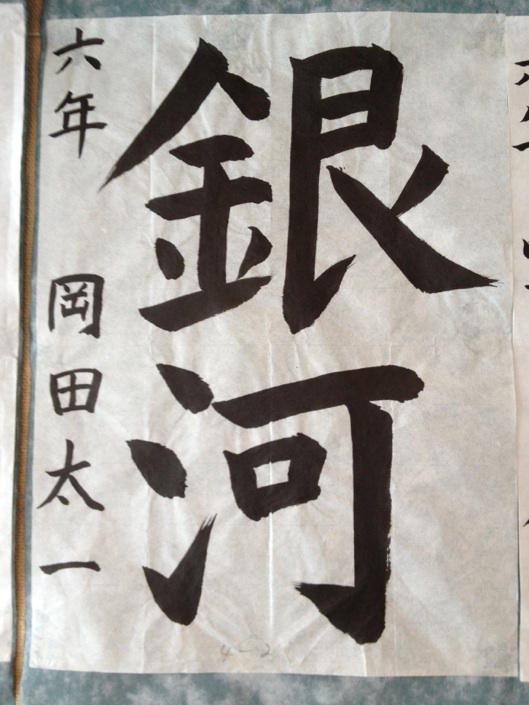 銀河
六年 岡田太一
4-2